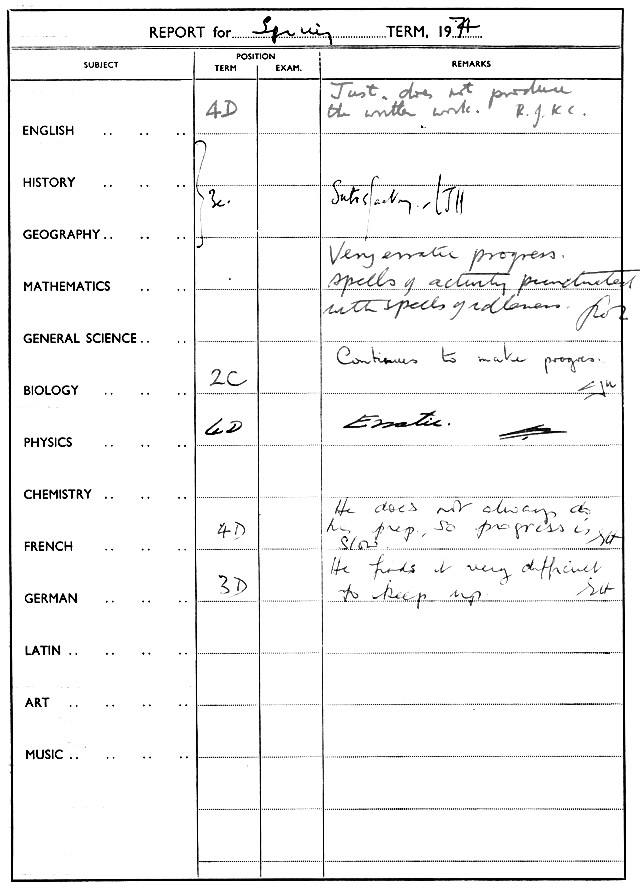 REPORT for Spring TERM, 1974
SUBJECT
POSITION
TERM EXAM.
REMARKS
ENGLISH .. .. .. 4D
Just does not produce
the written work. R.J.K.C.
HISTORY .. .. ..
3c.
Satisfactory. JH
GEOGRAPHY .. .. ..
MATHEMATICS .. ..
Very erratic progress.
spells of activity punctuated
with spells of idleness.
GENERAL SCIENCE .. ..
BIOLOGY .. .. .. 2C
Continues to make progress.
PHYSICS .. .. .. 4D
Erratic.
CHEMISTRY .. .. ..
FRENCH .. .. .. 4D
He does not always do
his prep, so progress is
slow. SH
GERMAN .. .. .. 3D
He finds it very difficult
to keep up. SH
LATIN .. .. .. ..
ART .. .. ..
MUSIC .. .. .. ..